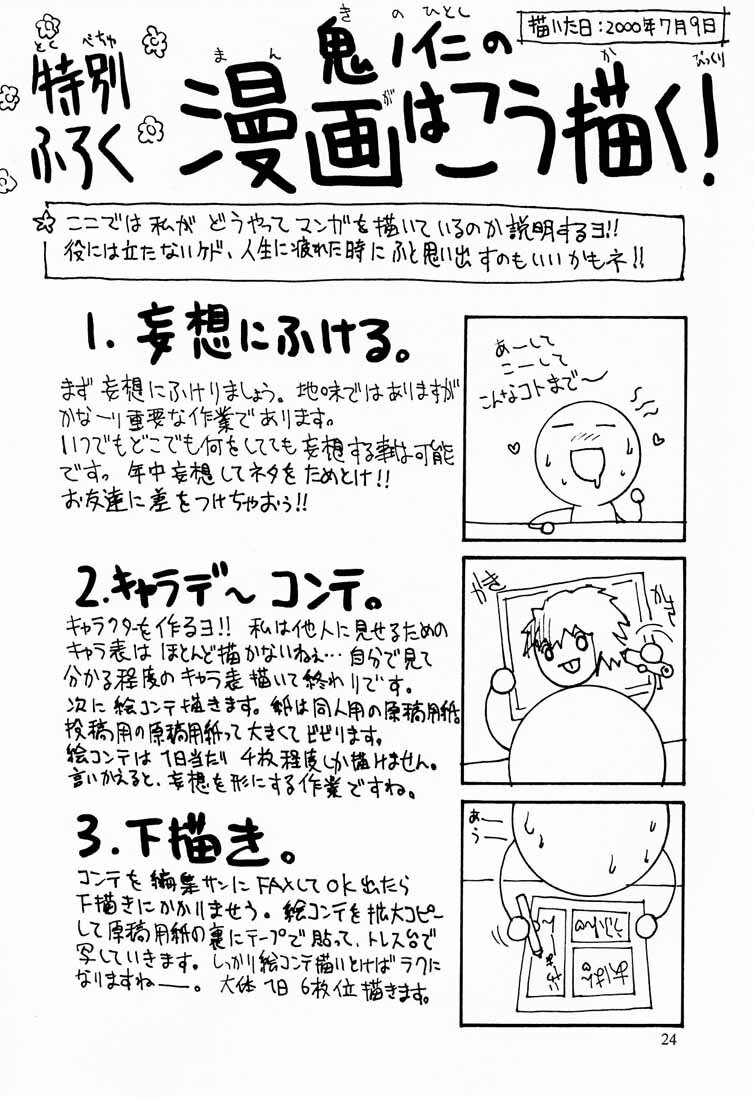 描いた日:2000年7月9日
とく べちゅ
特別
ふろく
きのひとし
鬼ノ仁の
まん が か びっくり
漫画はこう描く!
☆ここでは私がどうやってマンガを描いているのか説明するヨ!!
役には立たないケド、人生に疲れた時にふと思い出すのもいいかもネ!!
1.妄想にふける。
まず妄想にふけりましょう。地味ではありますが
かな〜り重要な作業であります。
いつでもどこでも何をしてても妄想する事は可能
です。年中妄想してネタをためとけ!!
お友達に差をつけちゃおう!!
あーして
こーして
こんなコトまで〜
2.キャラデ〜コンテ。
キャラクターを作るヨ!!私は他人に見せるための
キャラ表はほとんど描かないねぇ…自分で見て
分かる程度のキャラ表描いて終わりです。
次に絵コンテ描きます。紙は同人用の原稿用紙。
投稿用の原稿用紙って大きくてビビります。
絵コンテは1日当だり4枚程度しか描けません。
言いかえると、妄想を形にする作業ですね。
かき
かき
3.下描き。
コンテを編集サンにFAXしてOK出たら
下描きにかかりませう。絵コンテを拡大コピー
して原稿用紙の裏にテープで貼って、トレス台で
写していきます。しっかり絵コンテ描いとけばラクに
なりますね——。大体1日6枚位描きます。
あ——
う——
24